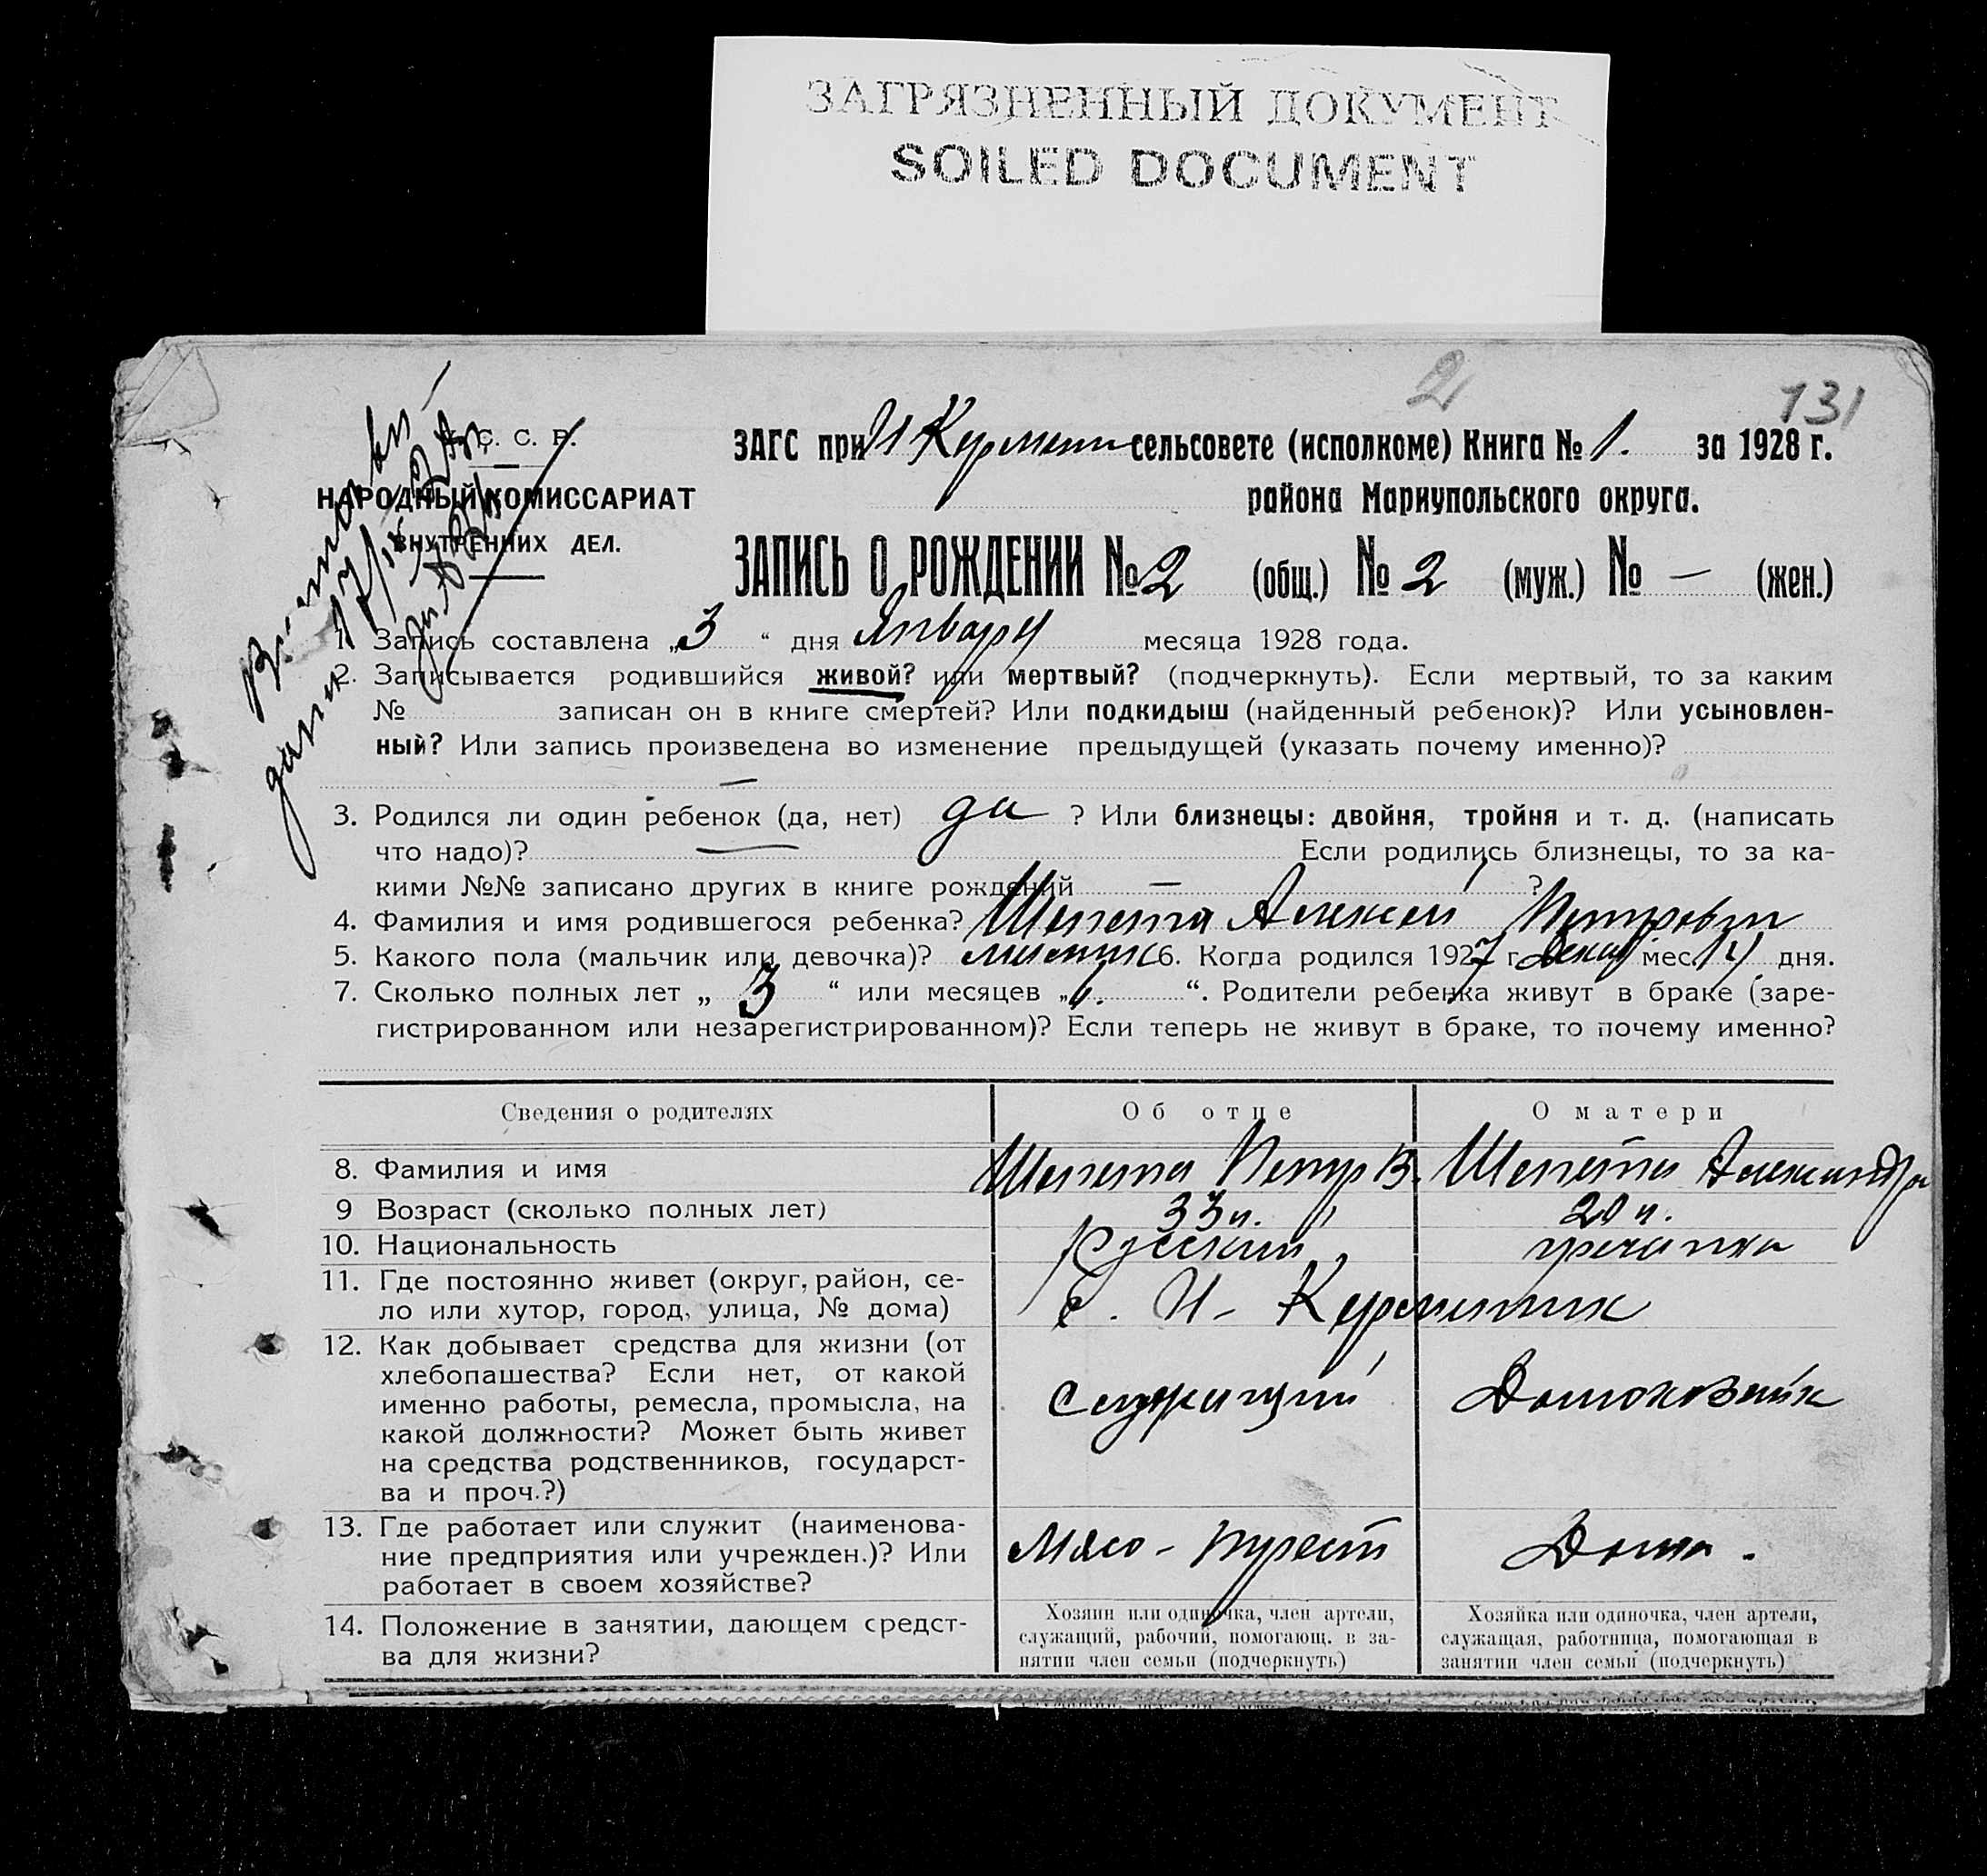 ЗАГРЯЗНЕННЫЙ ДОКУМЕНТ
SOILED DOCUMENT
2
131
С. С. Р.
НАРОДНЫЙ КОМИССАРИАТ
ВНУТРЕННИХ ДЕЛ.
ЗАГС при сельсовете (исполкоме) Книга № 1. за 1928 г.
района Мариупольского округа.
ЗАПИСЬ О РОЖДЕНИИ № 2 (общ.) № 2 (муж.) № — (жен.)
1. Запись составлена „3“ дня Января месяца 1928 года.
2. Записывается родившийся живой? или мертвый? (подчеркнуть). Если мертвый, то за каким
№ записан он в книге смертей? Или подкидыш (найденный ребенок)? Или усыновлен-
ный? Или запись произведена во изменение предыдущей (указать почему именно)?
—
3. Родился ли один ребенок (да, нет) да ? Или близнецы: двойня, тройня и т. д. (написать
что надо)? — Если родились близнецы, то за ка-
кими №№ записано других в книге рождений — ?
4. Фамилия и имя родившегося ребенка? Шепета Алексей Петрович
5. Какого пола (мальчик или девочка)? мальчик 6. Когда родился 1927 г. Декаб мес. дня.
7. Сколько полных лет „ 3 “ или месяцев „ “. Родители ребенка живут в браке (заре-
гистрированном или незарегистрированном)? Если теперь не живут в браке, то почему именно?
Сведения о родителях Об отце О матери
8. Фамилия и имя Шепета Петр В. Шепета Александра
9 Возраст (сколько полных лет) 33 л. 20 л.
10. Национальность Русский гречанка
11. Где постоянно живет (округ, район, се-
ло или хутор, город, улица, № дома) с. Н- Керменчик
12. Как добывает средства для жизни (от
хлебопашества? Если нет, от какой
именно работы, ремесла, промысла, на
какой должности? Может быть живет
на средства родственников, государст-
ва и проч.?)
Служащий Домохозяйк
13. Где работает или служит (наименова-
ние предприятия или учрежден.)? Или
работает в своем хозяйстве?
Мясо-трест Дома.
14. Положение в занятии, дающем средст-
ва для жизни?
Хозяин или одиночка, член артели,
служащий, рабочий, помогающ. в за-
нятии член семьи (подчеркнуть)
Хозяйка или одиночка, член артели,
служащая, работница, помогающая в
занятии член семьи (подчеркнуть)